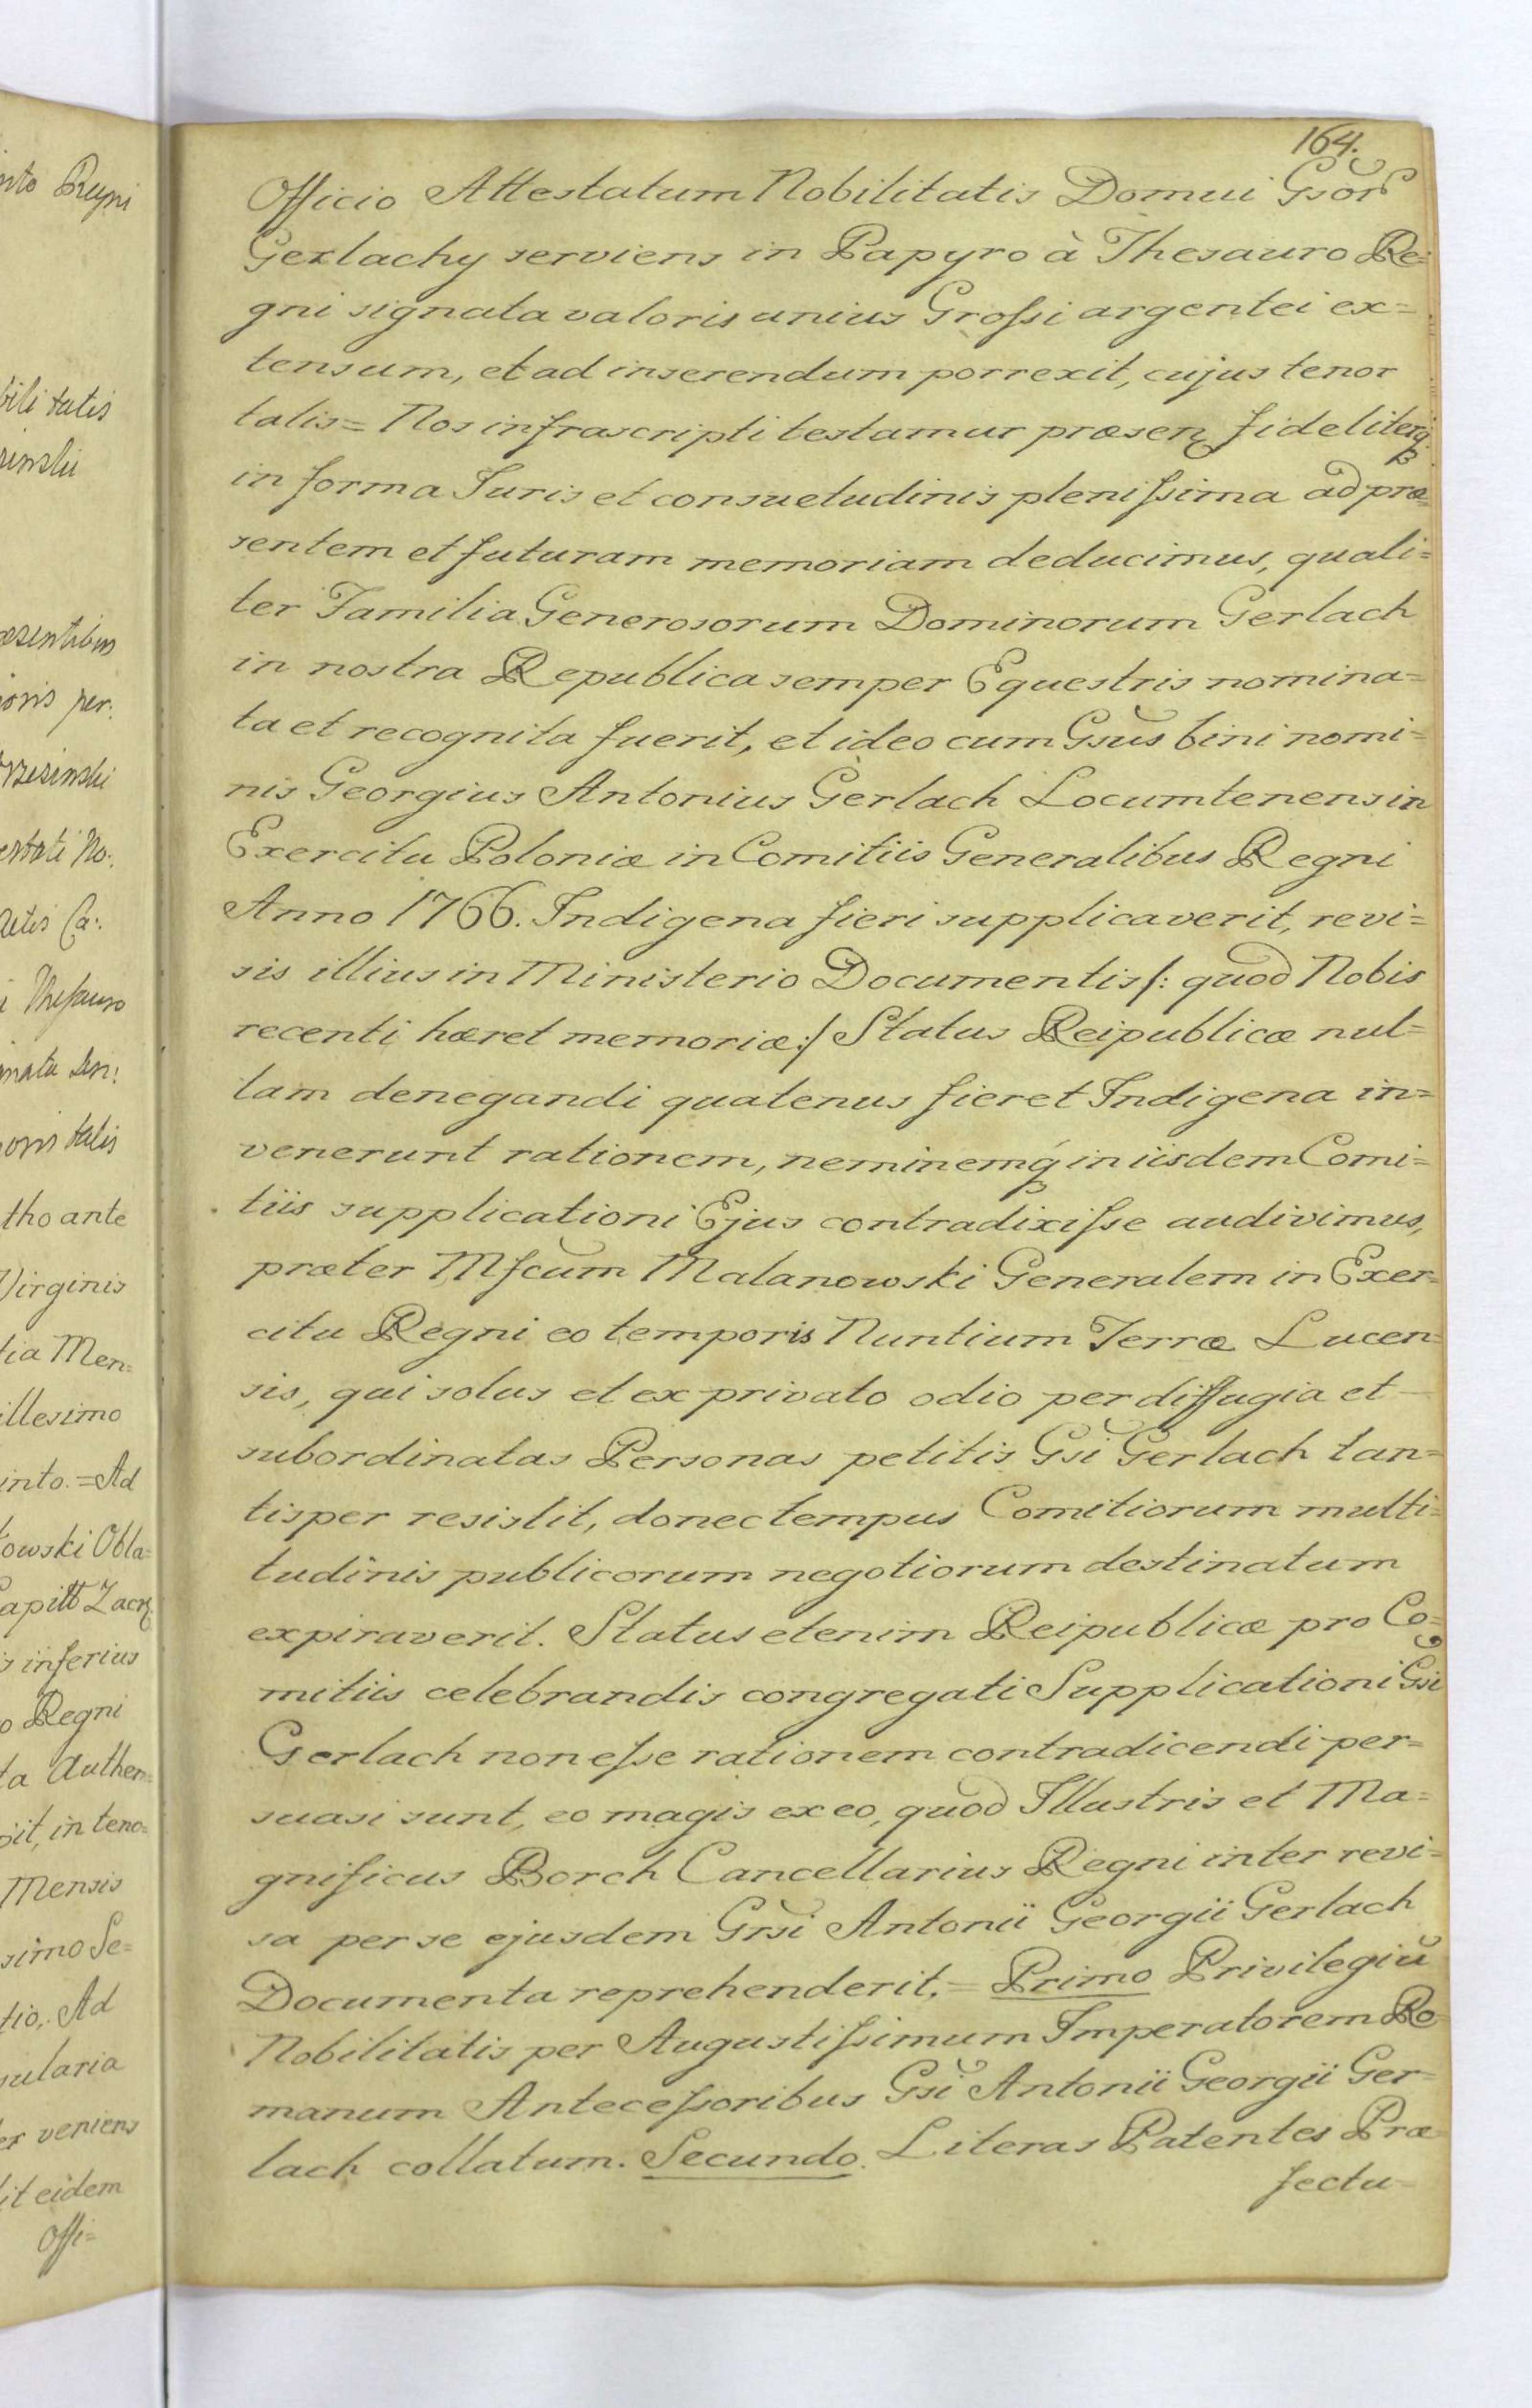 nto Regni
bili tatis
rzinski
æsentibus
ioris per:
rzesinski
estati No:
atis Ca:
i Thesauro
gnata den:
oris talis
tho ante
Virginis
tia Men=
illesimo
into. = Ad
kowski Obla=
Capitt Zacz
is inferius
o Regni
ta Authen=
sit, in teno=
Mensis
simo Se=
tio,. Ad
sularia
er veniens
it eidem
Offi=
164.
Officio Attestatum Nobilitatis Domui Gsor̃
Gerlachy serviens in Papyro à Thesauro Re=
gni signata valoris unius Grossi argentei ex=
tensum, et ad inserendum porrexit, cujus tenor
talis = Nos infrascripti testamur præsen, fideliterq̃
in forma Juris et consuetudinis plenissima ad præ=
sentem et futuram memoriam deducimus, quali=
ter Familia Generosorum Dominorum Gerlach
in nostra Republica semper Equestris nomina=
ta et recognita fuerit, et ideo cum Gsũs bini nomi=
nis Georgius Antonius Gerlach Locumtenens in
Exercitu Poloniæ in Comitiis Generalibus Regni
Anno 1766. Indigena fieri supplicaverit, revi=
sis illius in Ministerio Documentis /: quod Nobis
recenti hæret memoriæ :/ Status Reipublicæ nul=
lam denegandi quatenus fieret Indigena in=
venerunt rationem, neminemq́ in iisdem Comi=
tiis supplicationi Ejus contradixisse audivimus,
præter Mfcũm Malanowski Generalem in Exer=
citu Regni eo temporis Nuntium Terræ Lucen=
sis, qui solus et ex privato odio per diffugia et
subordinatas Personas petitis Gsĩ Gerlach tan=
tisper resistit, donec tempus Comitiorum multi=
tudinis publicorum negotiorum destinatum
expiraverit. Status etenim Reipublicæ pro Co=
mitiis celebrandis congregati Supplicationi Gsĩ
Gerlach non esse rationem contradicendi per=
suasi sunt, eo magis ex eo, quod Illustris et Ma=
gnificus Borch Cancellarius Regni inter revi=
sa per se ejusdem Grsĩ Antonii Georgii Gerlach
Documenta reprehenderit, = Primo Privilegiũ
Nobilitatis per Augustissimum Imperatorem Ro
manum Antecessoribus Gsĩ Antonii Georgii Ger=
lach collatum. Secundo. Literas Patentes Præ
fectu=